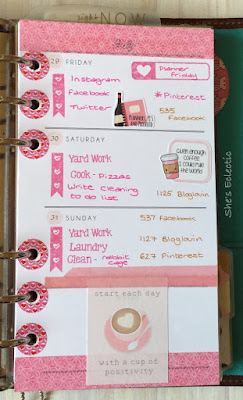 NOW
29 FRIDAY
Planner Friday
Instagram
Facebook
#Pinterest
Twitter
535
Facebook
30 SATURDAY
Given enough
coffee
I could rule
the world
Yard Work
Cook - pizzas
Write cleaning
to do list
1125 Bloglovin
31 SUNDAY
537 Facebook
Yard Work
1127 Bloglovin
Laundry
627 Pinterest
Clean - rabbit
cage
start each day
with a cup of
positivity
She's Eclectic